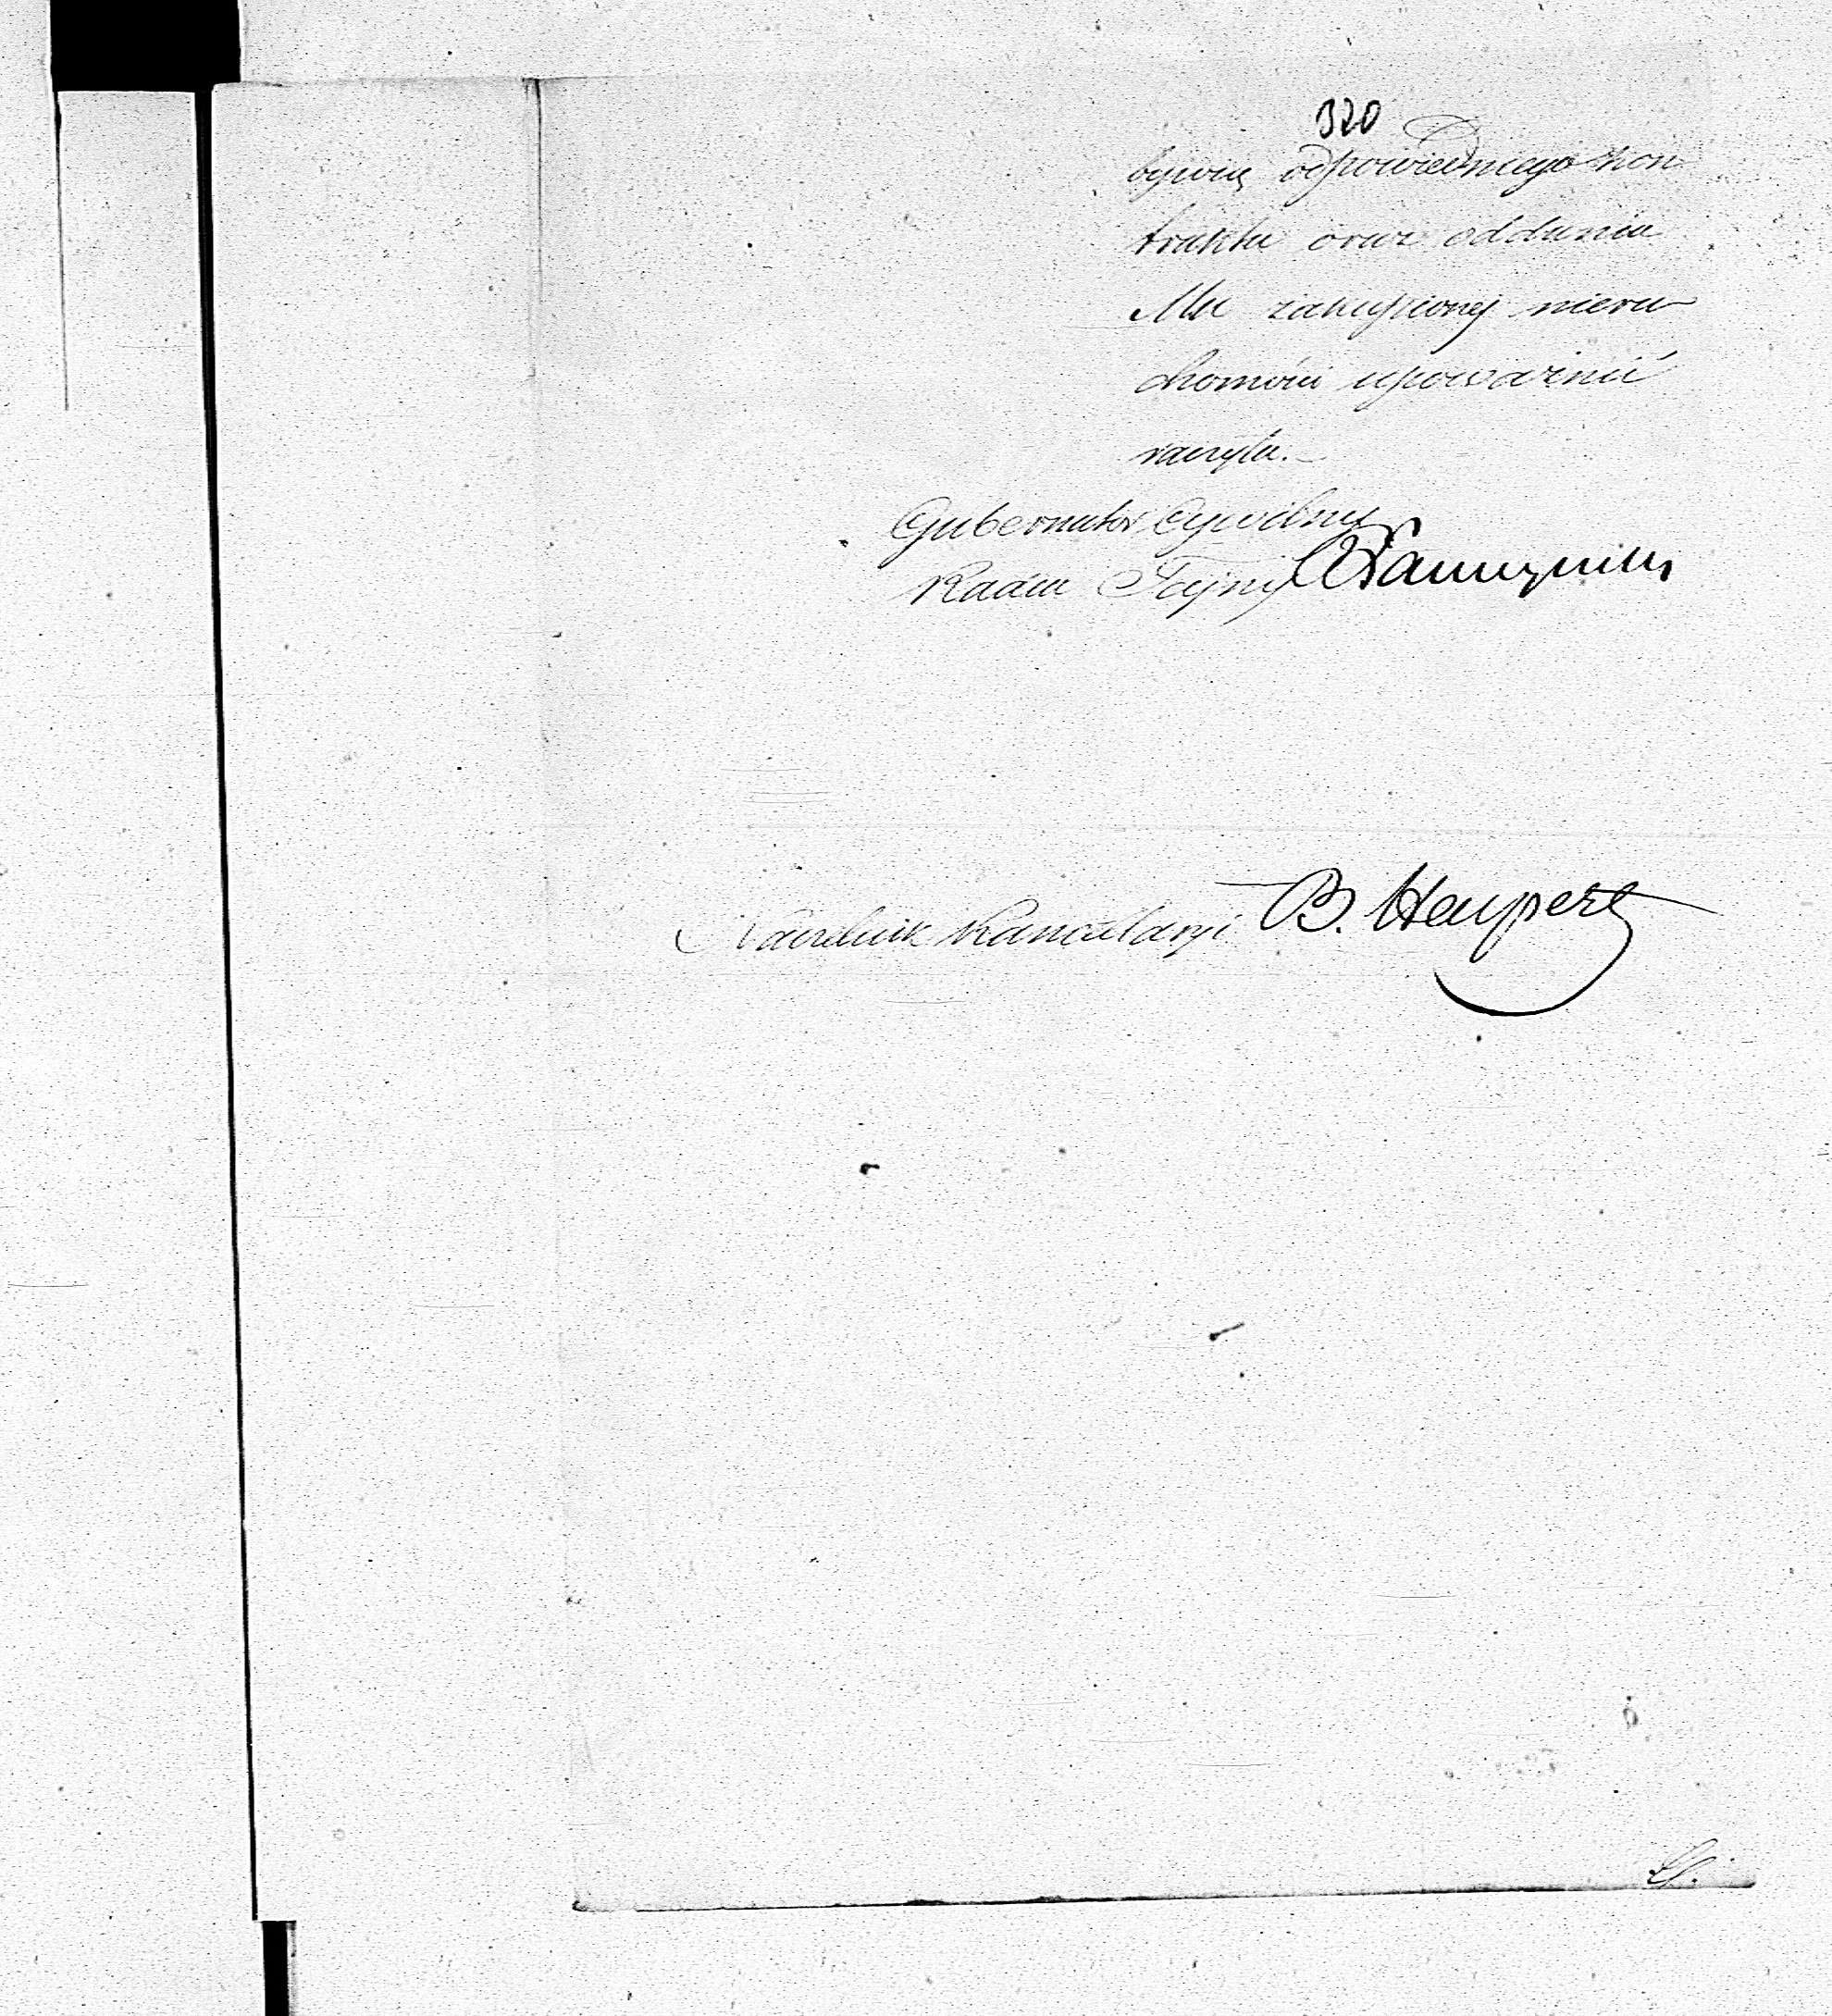 320
bywcą odpowiedniego kon
traktu oraz oddania
Mu zakupionej nieru
chomości upoważnić
raczyła.
Gubernator Cywilny
Radca Tajny
Naczelnik Kancelaryi B. Heypert